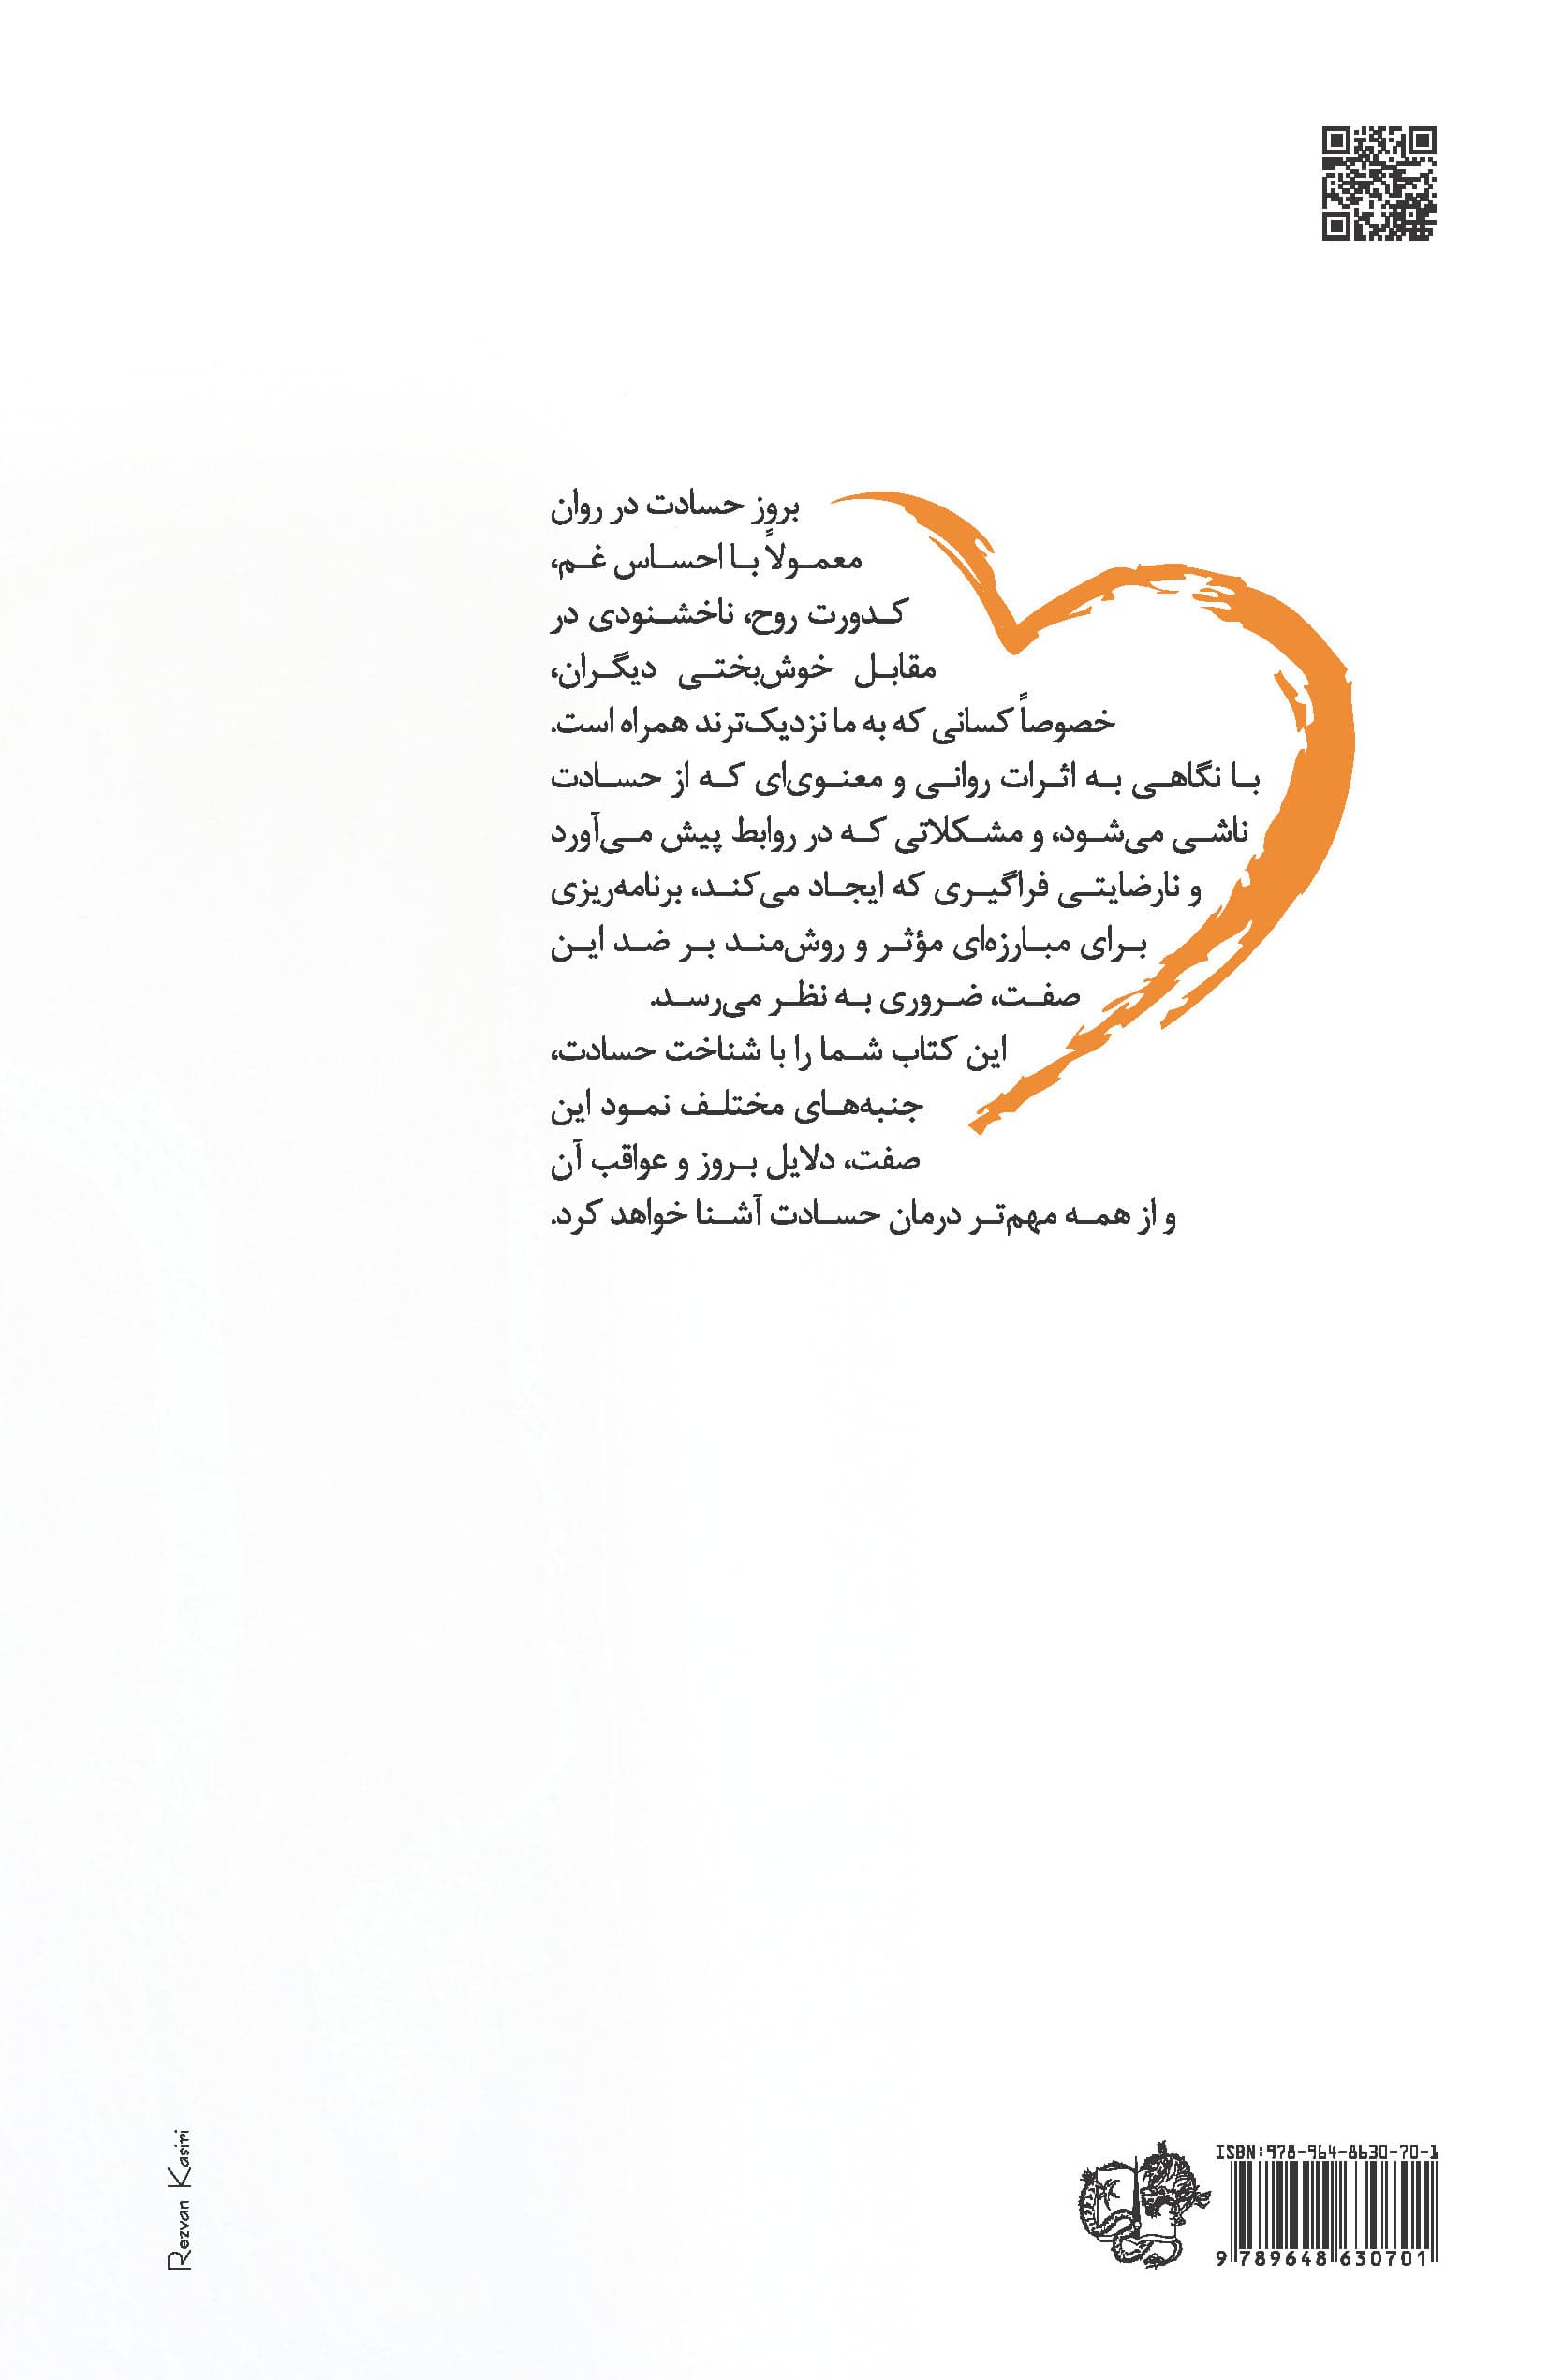 بروز حسادت در روان
معمولاً با احساس غم،
کدورت روح، ناخشنودی در
مقابل خوش‌بختی دیگران،
خصوصاً کسانی که به ما نزدیک‌ترند همراه است.
با نگاهی به اثرات روانی و معنوی‌ای که از حسادت
ناشی می‌شود، و مشکلاتی که در روابط پیش می‌آورد
و نارضایتی فراگیری که ایجاد می‌کند، برنامه‌ریزی
برای مبارزه‌ای مؤثر و روش‌مند بر ضد این
صفت، ضروری به نظر می‌رسد.
این کتاب شما را با شناخت حسادت،
جنبه‌های مختلف نمود این
صفت، دلایل بروز و عواقب آن
و از همه مهم‌تر درمان حسادت آشنا خواهد کرد.
Rezvan Kasiri
ISBN:978-964-8630-70-1
9 789648 630701